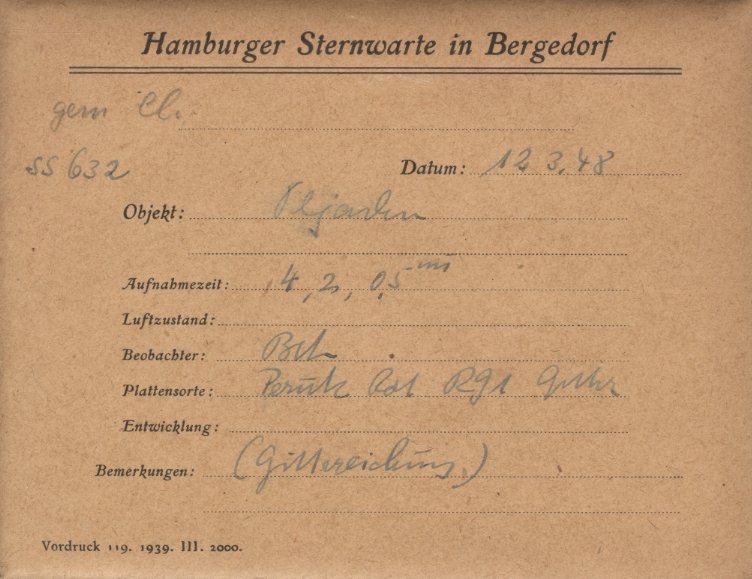 Hamburger Sternwarte in Bergedorf
gem Cl.
SS 632
Datum: 12 3. 48
Objekt: Plejaden
Aufnahmezeit: 4, 2, 0,5 ms
Luftzustand:
Beobachter:
Plattensorte: Perutz Rot
Entwicklung:
Bemerkungen: (Gittereichung.)
Vordruck 119. 1939. III. 2000.